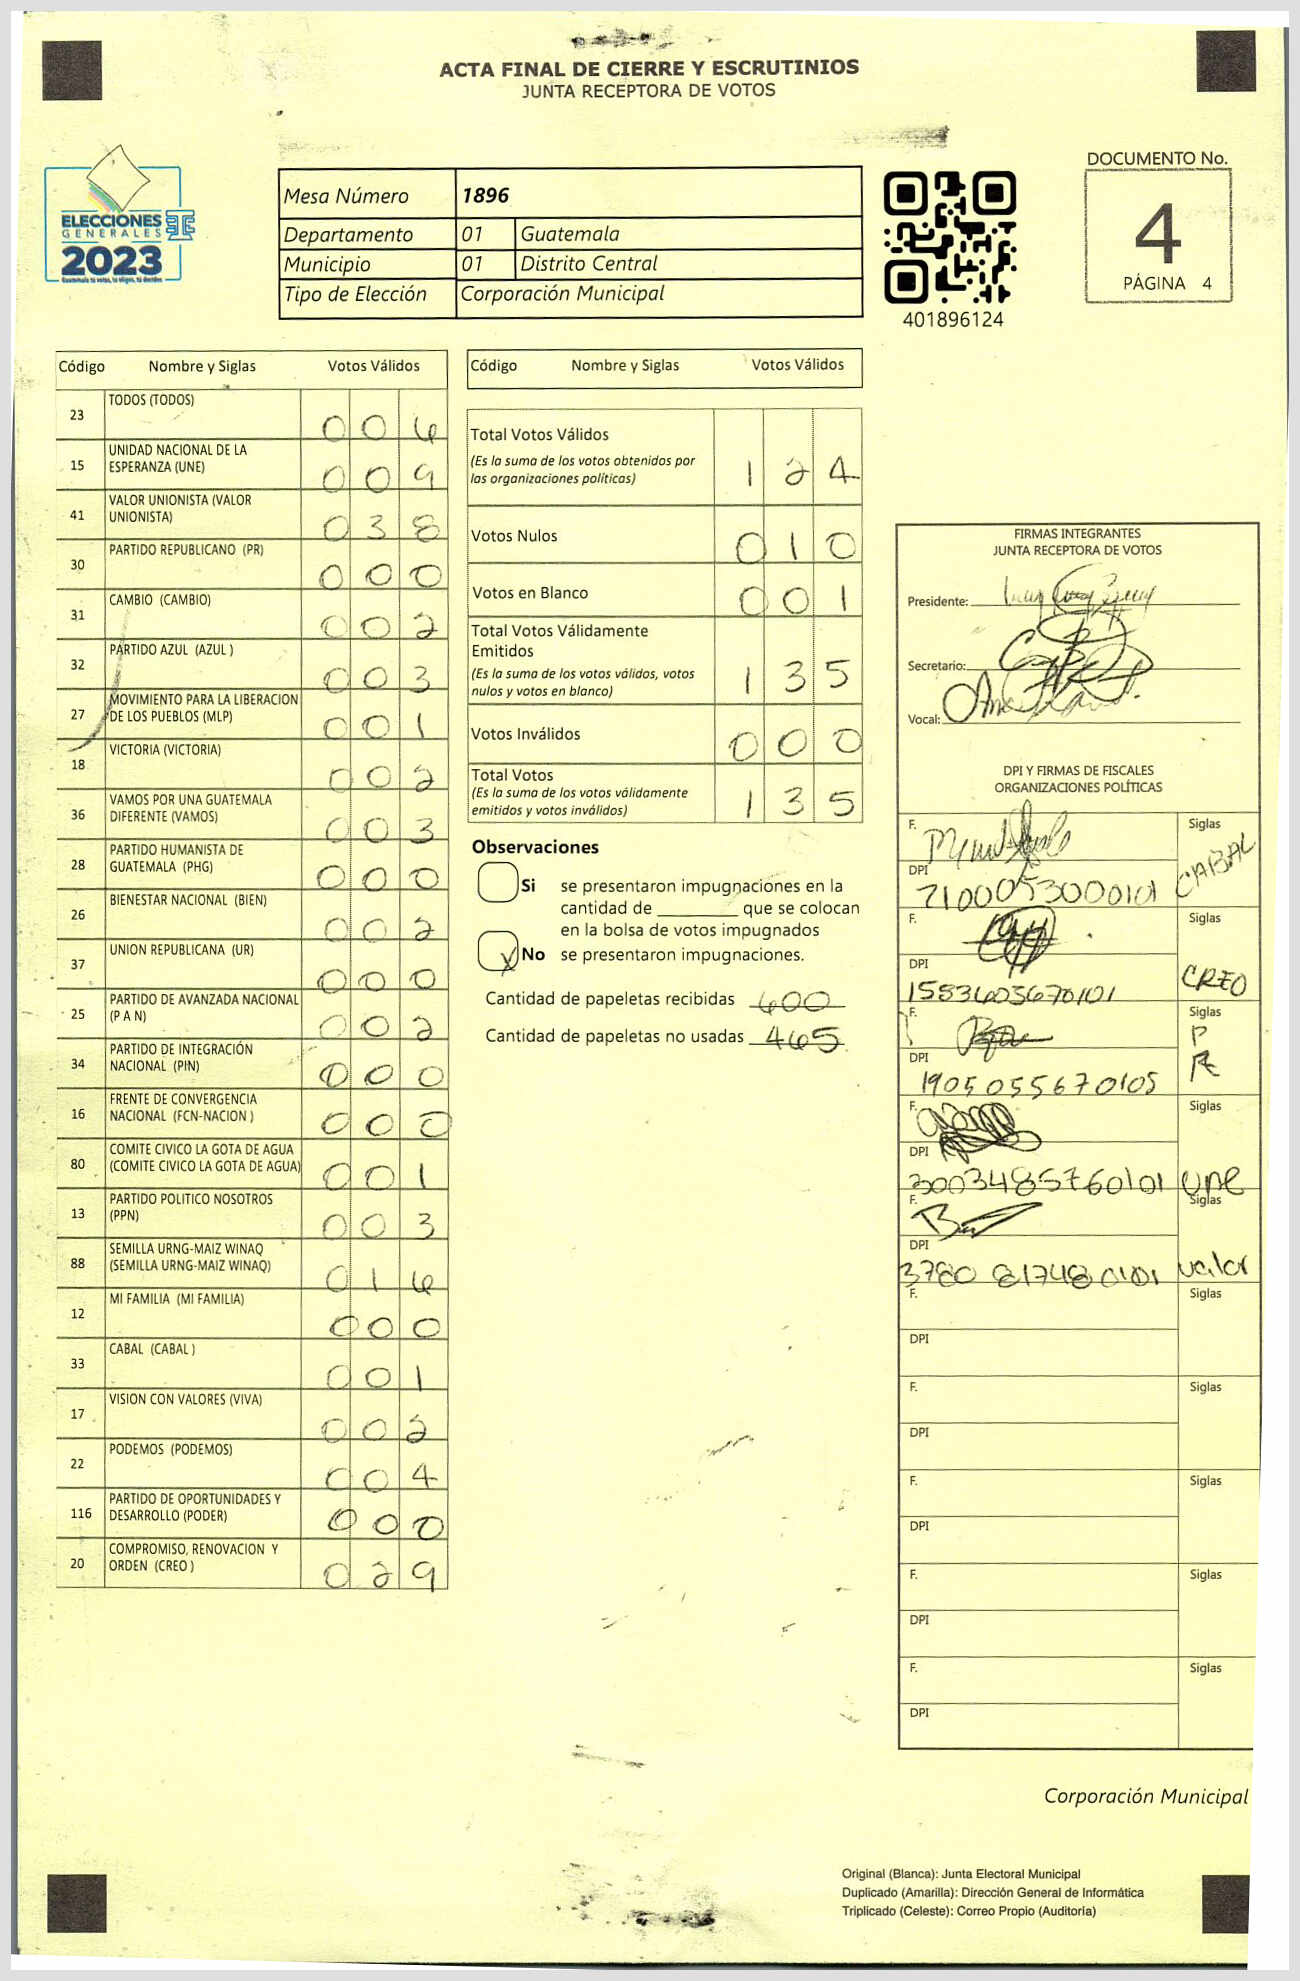 ACTA FINAL DE CIERRE Y ESCRUTINIOS
JUNTA RECEPTORA DE VOTOS
ELECCIONES
GENERALES
2023
Mesa Número 1896
Departamento 01 Guatemala
Municipio 01 Distrito Central
Tipo de Elección Corporación Municipal
401896124
DOCUMENTO No.
4
PÁGINA 4
Código Nombre y Siglas Votos Válidos
23 TODOS (TODOS) 0 0 6
15 UNIDAD NACIONAL DE LA
ESPERANZA (UNE) 0 0 9
41 VALOR UNIONISTA (VALOR
UNIONISTA) 0 3 8
30 PARTIDO REPUBLICANO (PR) 0 0 0
31 CAMBIO (CAMBIO) 0 0 2
32 PARTIDO AZUL (AZUL ) 0 0 3
27 MOVIMIENTO PARA LA LIBERACION
DE LOS PUEBLOS (MLP) 0 0 1
18 VICTORIA (VICTORIA) 0 0 2
36 VAMOS POR UNA GUATEMALA
DIFERENTE (VAMOS) 0 0 3
28 PARTIDO HUMANISTA DE
GUATEMALA (PHG) 0 0 0
26 BIENESTAR NACIONAL (BIEN) 0 0 2
37 UNION REPUBLICANA (UR) 0 0 0
25 PARTIDO DE AVANZADA NACIONAL
(P A N) 0 0 2
34 PARTIDO DE INTEGRACIÓN
NACIONAL (PIN) 0 0 0
16 FRENTE DE CONVERGENCIA
NACIONAL (FCN-NACION ) 0 0 0
80 COMITE CIVICO LA GOTA DE AGUA
(COMITE CIVICO LA GOTA DE AGUA) 0 0 1
13 PARTIDO POLITICO NOSOTROS
(PPN) 0 0 3
88 SEMILLA URNG-MAIZ WINAQ
(SEMILLA URNG-MAIZ WINAQ) 0 1 6
12 MI FAMILIA (MI FAMILIA) 0 0 0
33 CABAL (CABAL ) 0 0 1
17 VISION CON VALORES (VIVA) 0 0 2
22 PODEMOS (PODEMOS) 0 0 4
116 PARTIDO DE OPORTUNIDADES Y
DESARROLLO (PODER) 0 0 0
20 COMPROMISO, RENOVACION Y
ORDEN (CREO ) 0 2 9
Código Nombre y Siglas Votos Válidos
Total Votos Válidos
(Es la suma de los votos obtenidos por
las organizaciones políticas) 1 2 4
Votos Nulos 0 1 0
Votos en Blanco 0 0 1
Total Votos Válidamente
Emitidos
(Es la suma de los votos válidos, votos
nulos y votos en blanco) 1 3 5
Votos Inválidos 0 0 0
Total Votos
(Es la suma de los votos válidamente
emitidos y votos inválidos) 1 3 5
Observaciones
Si se presentaron impugnaciones en la
cantidad de ________ que se colocan
en la bolsa de votos impugnados
X No se presentaron impugnaciones.
Cantidad de papeletas recibidas 600
Cantidad de papeletas no usadas 465
FIRMAS INTEGRANTES
JUNTA RECEPTORA DE VOTOS
Presidente:
Secretario:
Vocal:
DPI Y FIRMAS DE FISCALES
ORGANIZACIONES POLÍTICAS
F. Siglas
CABAL
DPI
710005300 0101
F. Siglas
DPI
1583603670101 CREO
F. Siglas
P
R
DPI
1905055670105
F. Siglas
DPI
3003485760101 UNE
F. Siglas
DPI
3780 81748 0101 Valor
F. Siglas
DPI
F. Siglas
DPI
F. Siglas
DPI
F. Siglas
DPI
F. Siglas
DPI
Corporación Municipal
Original (Blanca): Junta Electoral Municipal
Duplicado (Amarilla): Dirección General de Informática
Triplicado (Celeste): Correo Propio (Auditoría)